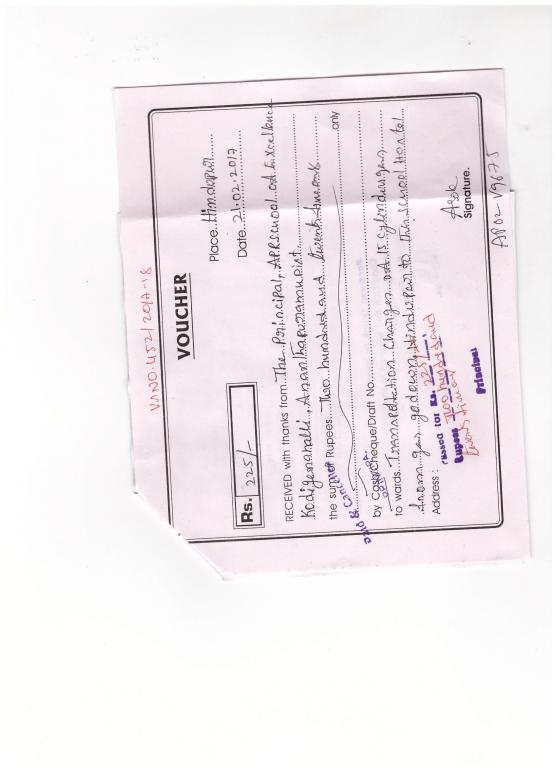 V.NO: 452/2017-18
VOUCHER
Place...Hindupur......
Rs. 225/-
Date..21.02.2017
RECEIVED with thanks from...The Principal, A.P.R.School of Excellence
Kodigenahalli, Ananthapuramu dist
the sum of Rupees...Two hundred and twenty five only
paid & Cancelled
by Cash/Cheque/Draft No.
to wards...Transportation Charges of 15 cylenderges
from gas godown, Hindupur to this school Hostel
Address :
Passed for Rs. 225/-
Rupees Two hundred and
twenty five only
Asok
Signature.
Principal
AP02-V9675